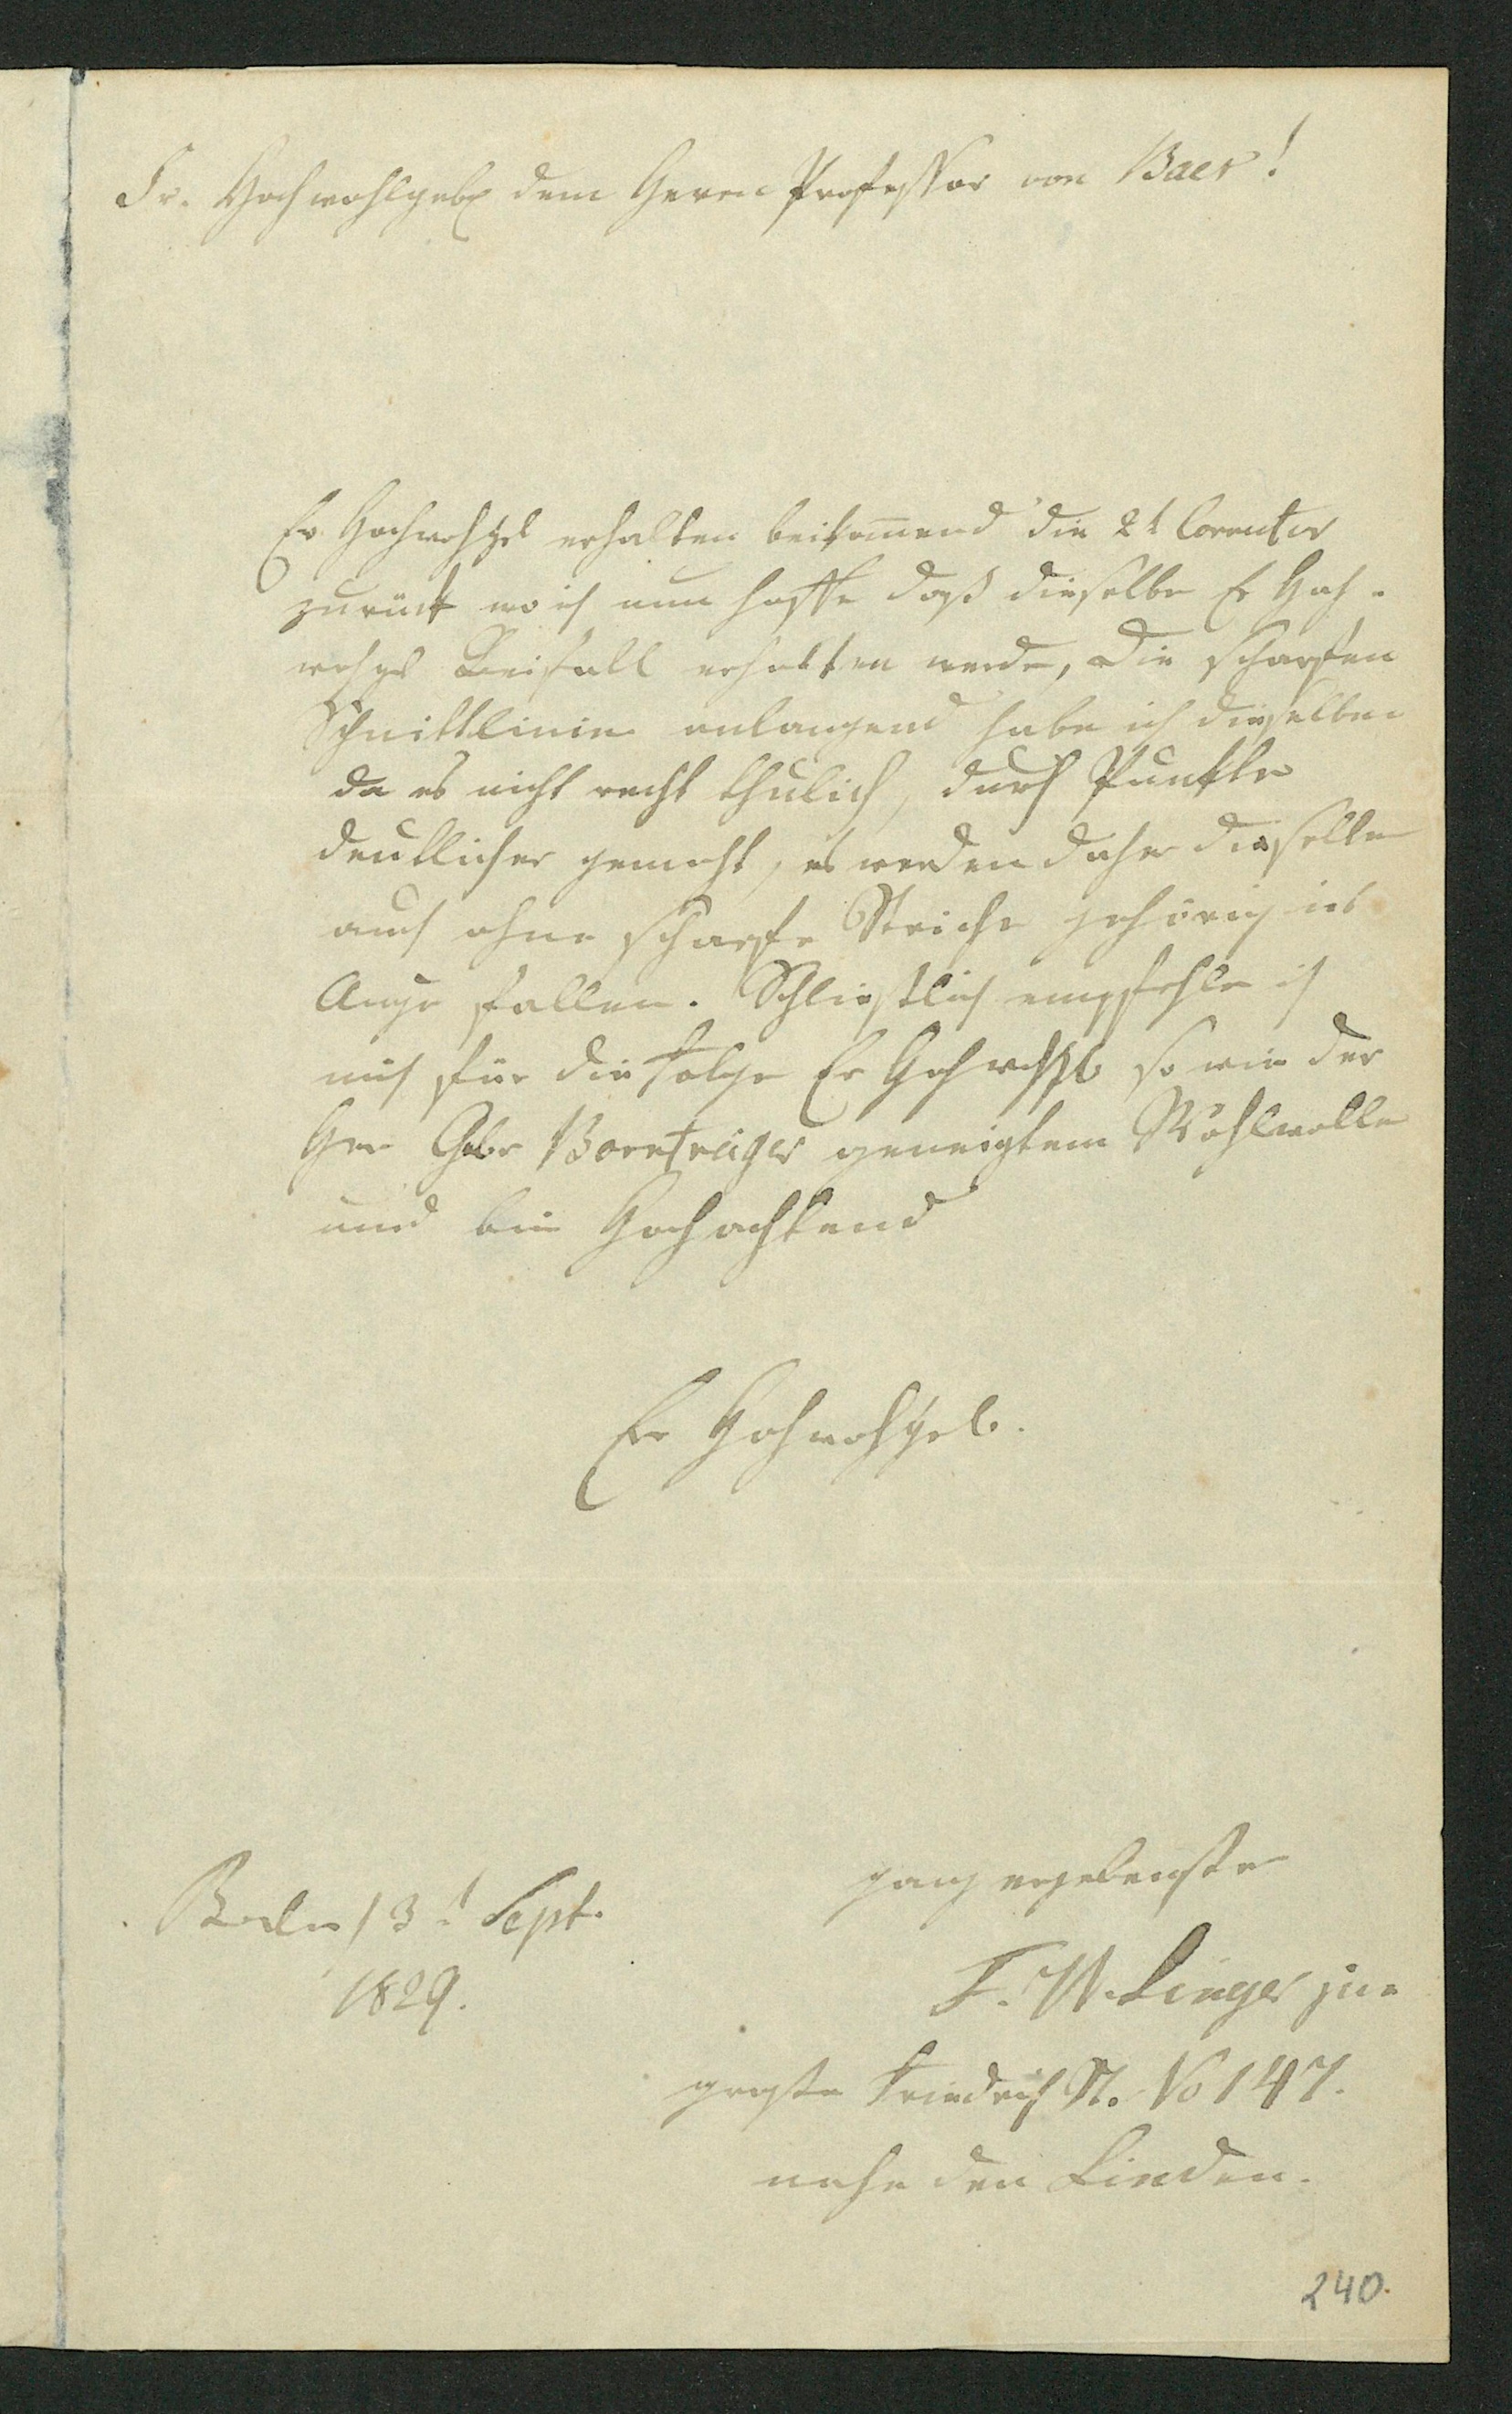 Sr. Hochwohlgeb dem Herrn Professor von Baer!
Ew Hochwohlgeb erhalten beikom̅end die 2t Correctur
zurück wo ich nun hoffe daß dieselbe Ew Hoch-
wohlgeb Beifall erhalten werde, die scharfen
Schnittlinien anlangend habe ich dieselben
da es nicht recht thulich, durch Punkte
deutlicher gemacht, es werden daher dieselben
auch ohne scharfe Striche gehörig ins
Auge fallen. Schlieslich empfehle ich
mich für die Folge Ew Hochwohlgeb so wie der
Hrn Gebr Bornträger geneigtem Wohlwollen
und bin Hochachtend
Ew Hochwohlgeb.
ganz ergebenster
Berlin 13t Sept.
1829.
F. W. Linger jun
große Friedrich St. No 147.
nahe den Linden.
240.